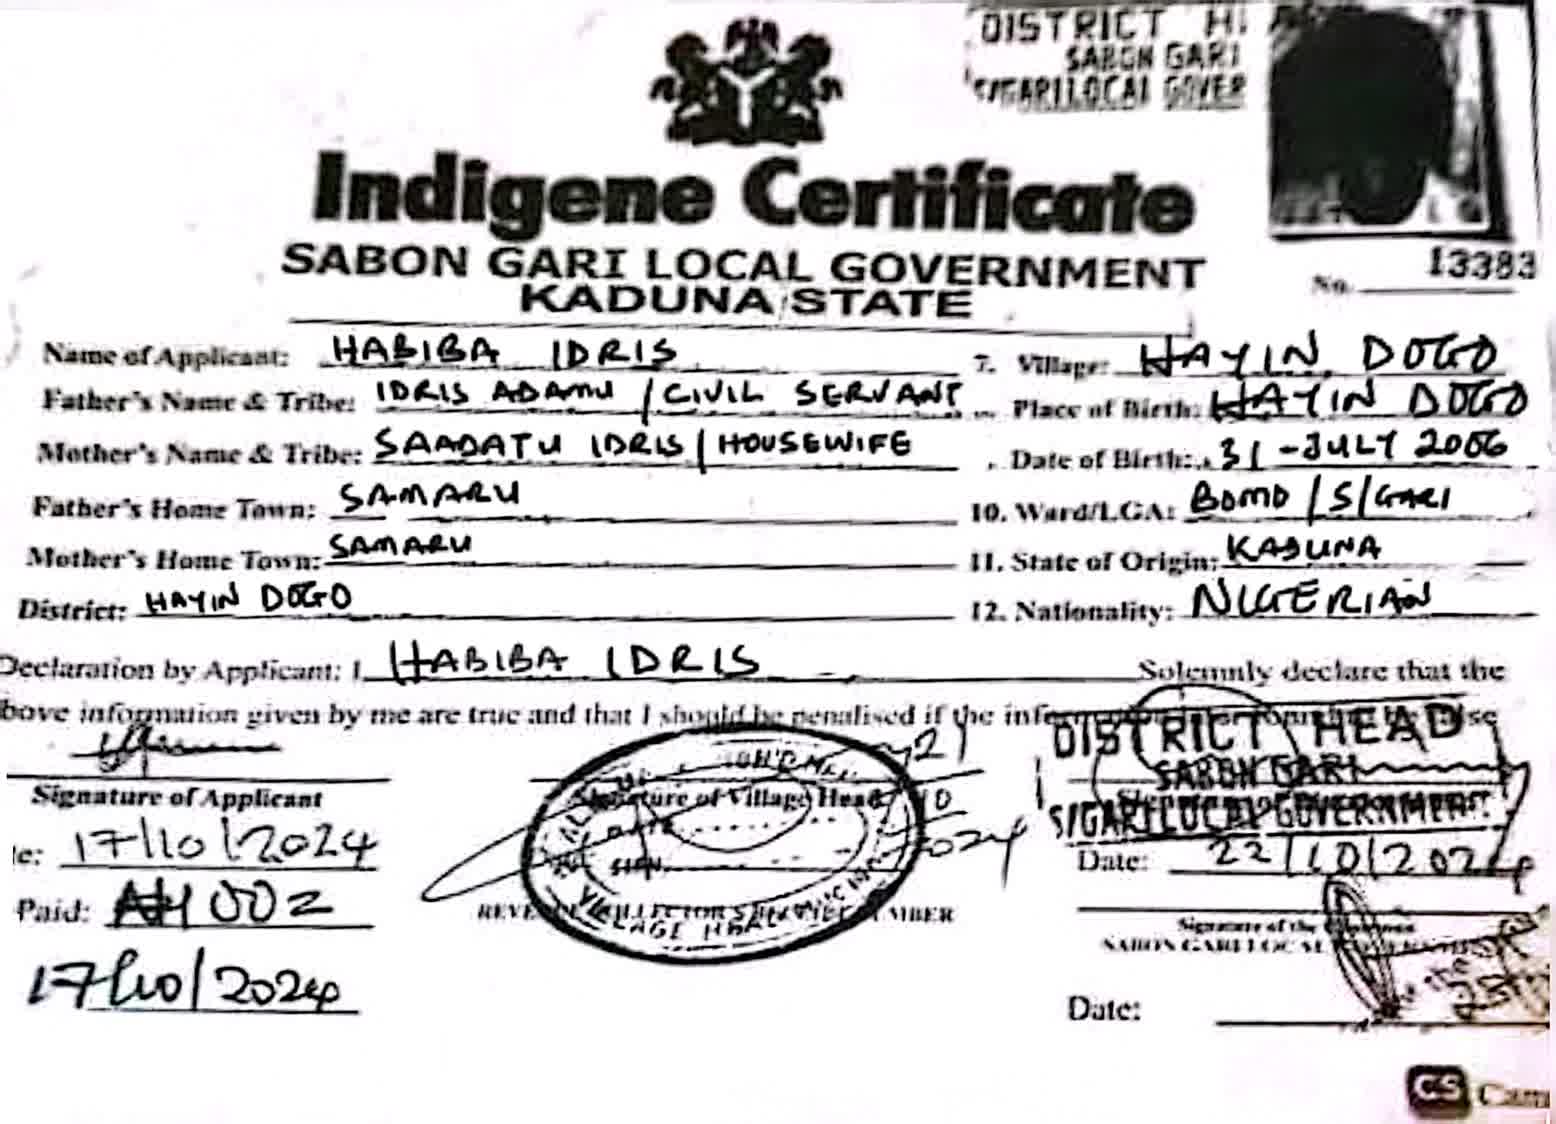 DISTRICT H
SABON GARI
S/GARI LOCAL GOVER
Indigene Certificate
SABON GARI LOCAL GOVERNMENT
KADUNA STATE
No. 13383
Name of Applicant: HABIBA IDRIS
Father's Name & Tribe: IDRIS ADAMU / CIVIL SERVANT
Mother's Name & Tribe: SAADATU IDRIS / HOUSEWIFE
Father's Home Town: SAMARU
Mother's Home Town: SAMARU
District: HAYIN DOGO
7. Village: HAYIN DOGO
Place of Birth: HAYIN DOGO
Date of Birth: 31-JULY 2006
10. Ward/LGA: BOMO /S/GARI
11. State of Origin: KADUNA
12. Nationality: NIGERIAN
Declaration by Applicant: I HABIBA IDRIS Solemnly declare that the
bove information given by me are true and that I should be penalised if the
Signature of Applicant
Signature of Village Head
DISTRICT HEAD
SABON GARI
S/GARI LOCAL GOVERNMENT
17/10/2024
Date: 22/10/2024
Paid: 002
17/10/2024
VILLAGE HEAD
SIGN
Signature of the
SABON GARI LOCAL
Date:
CS Cam